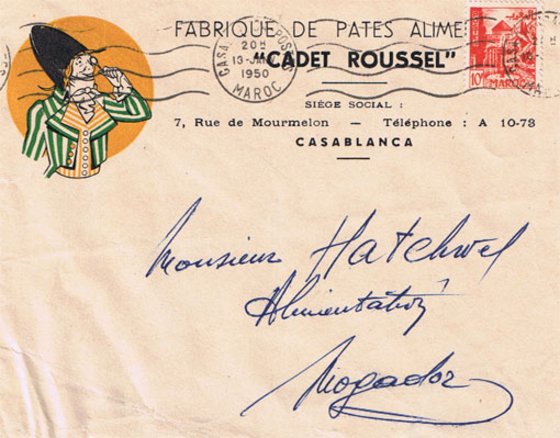 FABRIQUE DE PATES ALIME
"CADET ROUSSEL"
SIÈGE SOCIAL :
7, Rue de Mourmelon — Téléphone : A 10-73
CASABLANCA
20H
13-JAN
1950
MAROC
10F
MAROC
Monsieur Hatchwel
Alimentation
Mogador